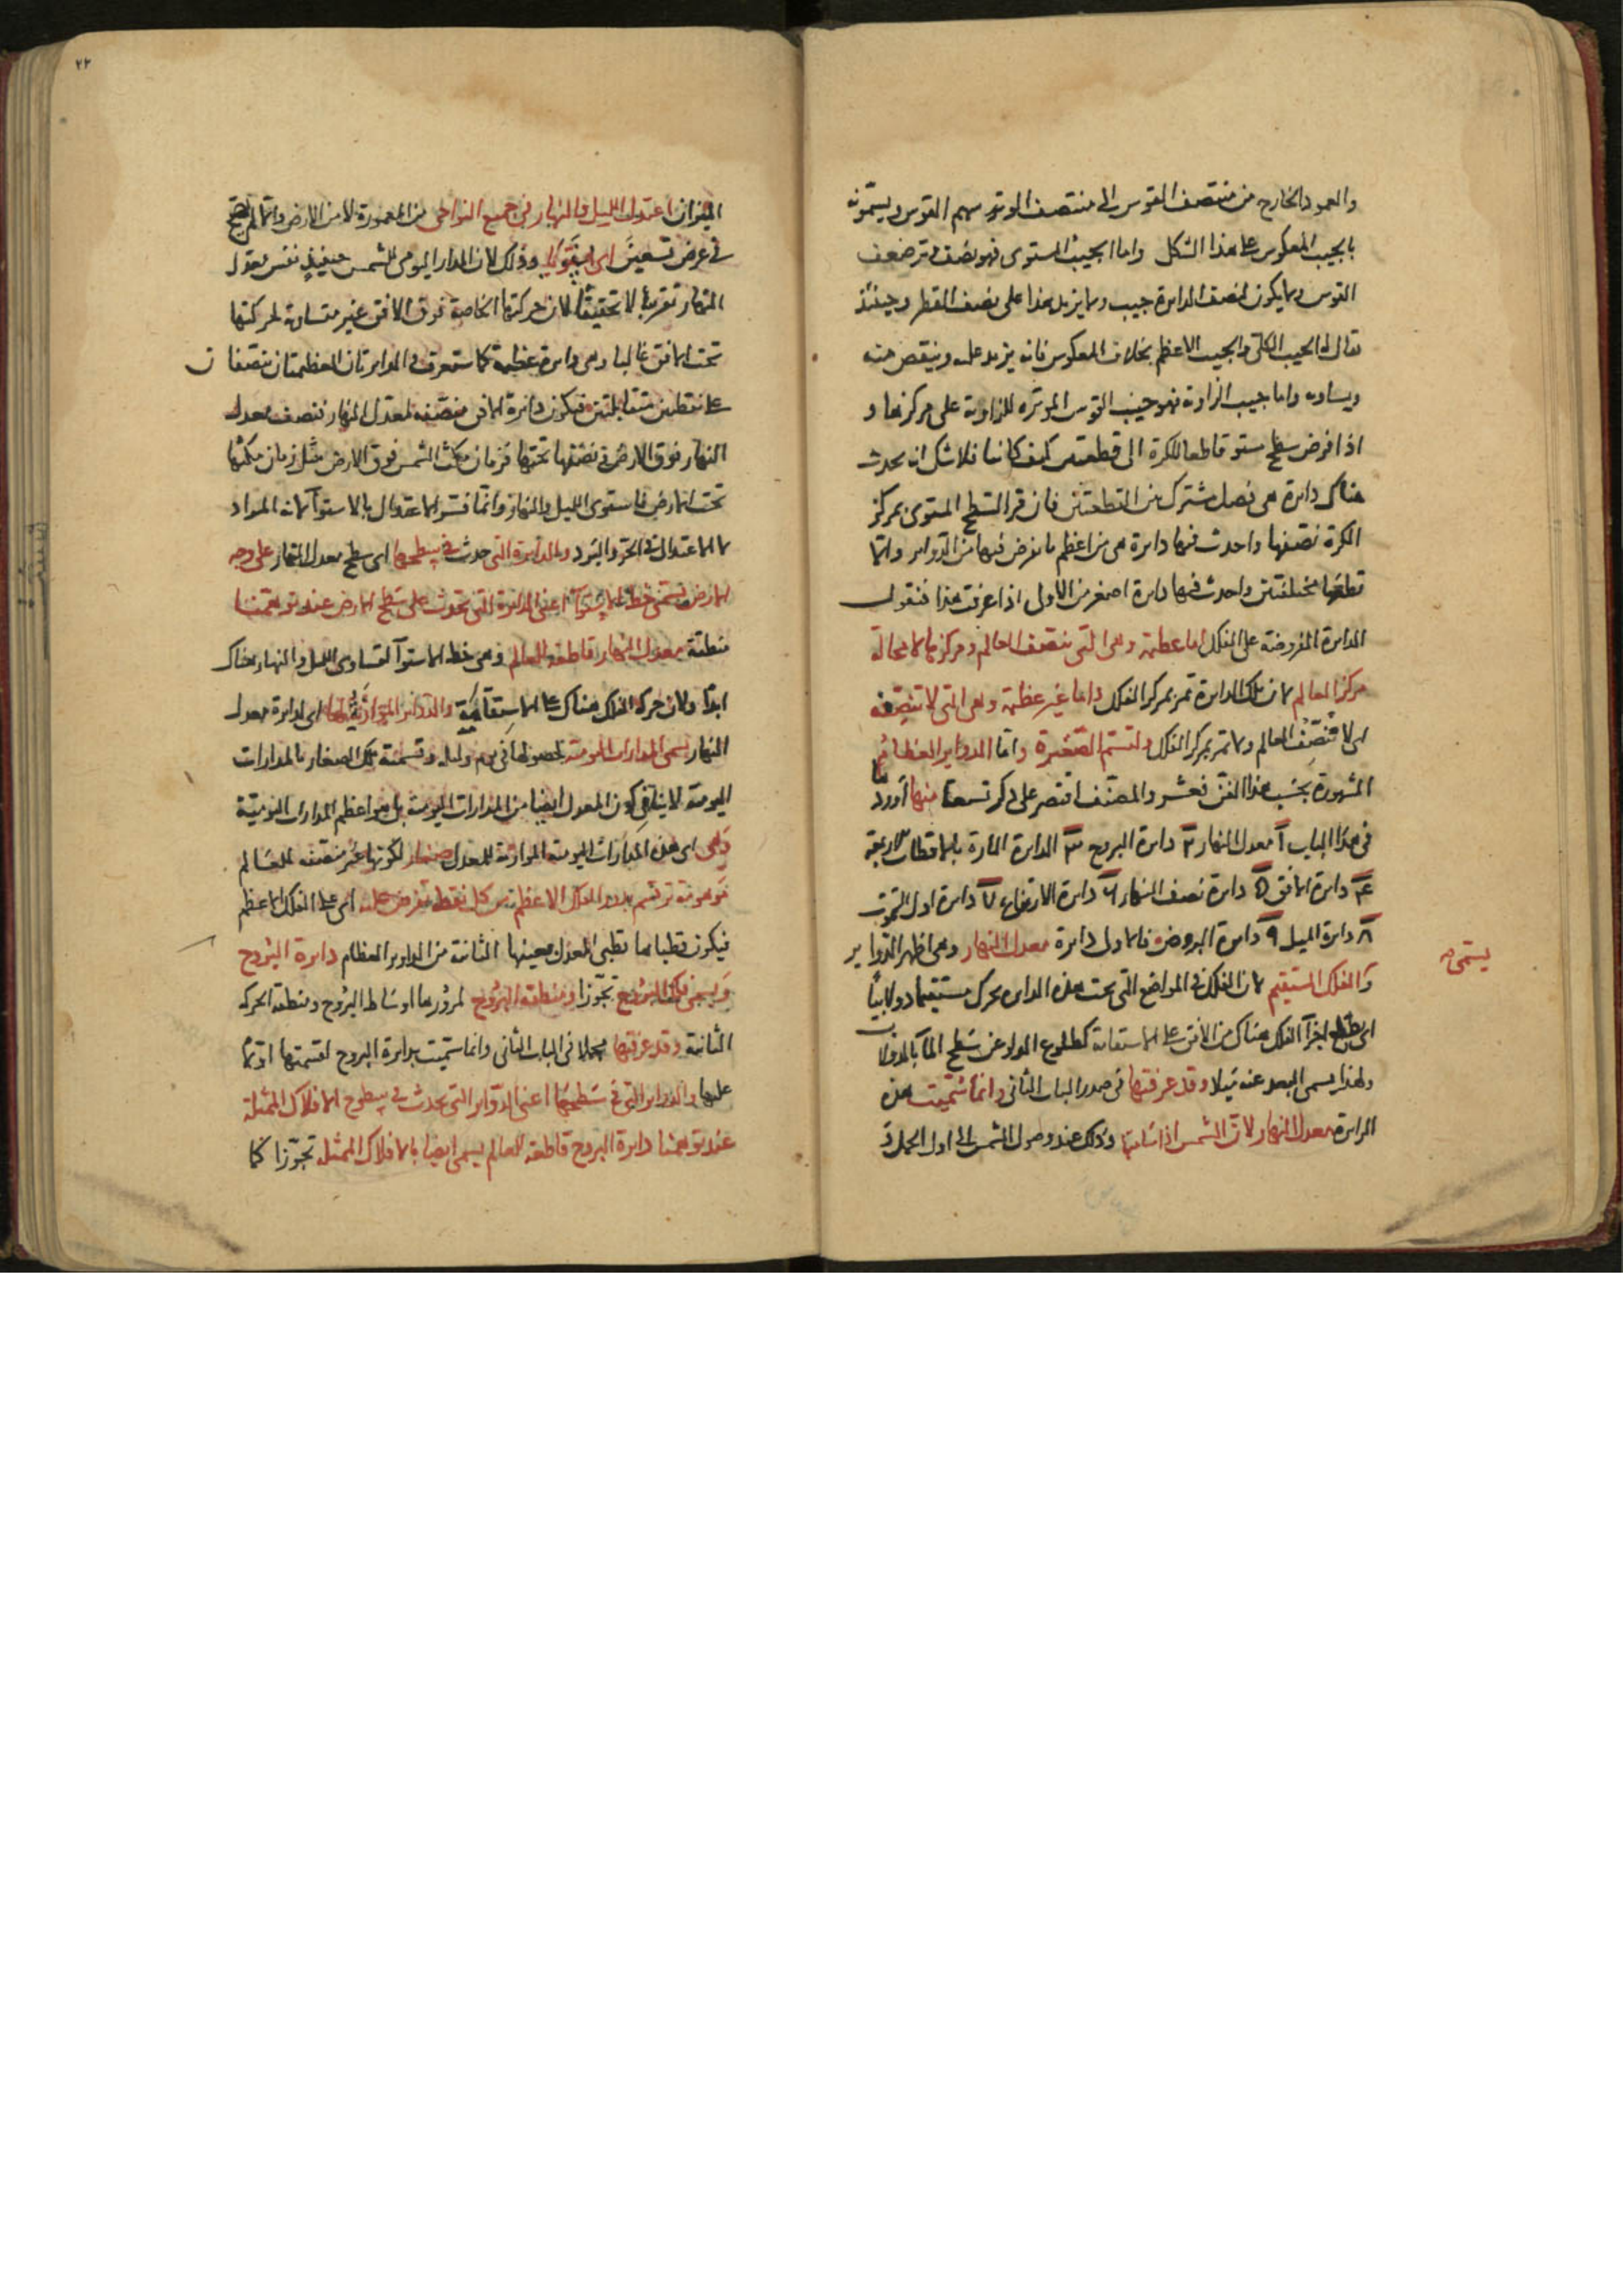 والعمود الخارج من منتصف القوس الى منتصف الوتر سهم القوس ويسمونه
بالجيب المعكوس على هذا الشكل واما الجيب المستوى فهو نصف وتر ضعف
القوس ولا يكون لنصف الدايرة جيب ولا يزيد هذا على نصف القطر وحينئذ
يقال له الجيب الكلى والجيب الاعظم بخلاف المعكوس فانه يزيد عليه وينقص منه
ويساويه واما جيب الزاوية فهو جيب القوس الموترة للزاوية على مركزها و
اذا فرض سطح مستو قاطعا للكرة الى قطعتين كيف كانتا فلا شك انه يحدث
هناك دايرة هى فصل مشترك بين القطعتين فان مر السطح المستوى بمركز
الكرة نصفها واحدث فيها دايرة هى من اعظم ما يفرض فيها من الدواير والا
قطعها بمختلفتين واحدث فيها دايرة اصغر من الاول اذا عرفت هذا فنقول
الدايرة المفروضة على الفلك اما عظيمة وهى التى تنصف العالم ومركزها لا محالة
مركز العالم لان تلك الدايرة تمر بمركز الفلك واما غير عظيمة وهى التى لا تنصفه
اى لا تنصف العالم ولا تمر بمركز الفلك ولتسم الصغيرة واما الدواير العظام
المشهورة بحسب هذا الفن فعشر والمصنف اقتصر على ذكر تسعة منها اورد
فى هذا الباب ١ معدل النهار ٢ دايرة البروج ٣ الدايرة المارة بالاقطاب الاربعة
٤ دايرة الافق ٥ دايرة نصف النهار ٦ دايرة الارتفاع ٧ دايرة اول السموت
٨ دايرة الميل ٩ دايرة العروض فالاول دايرة معدل النهار وهى اظهر الدواير
يسمى
والفلك المستقيم لان الفلك فى المواضع التى تحت هذه الدايرة يتحرك مستقيما دولابيا
اى يطلع اجزآ الفلك هناك من الافق على الاستقامة كطلوع الدلو عن سطح المآ بالدولاب
ولهذا يسمى البعد عنه ميلا وقد عرفتها فى صدر الباب الثانى وانما سميت هذه
الدايرة معدل النهار لان الشمس اذا سامتتها وذلك عند وصول الشمس الى اول الحمل و
٢٢
الميزان اعتدل الليل والنهار فى جميع النواحى من المعمورة لا من الارض والا لم يصح
فى عرض تسعين وذلك لان المدار اليومى للشمس حينئذ نفس معدل
النهار تقريبا لا تحقيقا لان حركتها الخاصة فوق الافق غير متساوية لحركتها
تحت الافق غالبا وهى دايرة عظيمة كما ستعرف والدايرتان العظيمتان تتنصفان
على نقطتين متقابلتين فيكون دايرة الافق منصفة لمعدل النهار فنصف معدل
النهار فوق الارض ونصفها تحتها فزمان مكث الشمس فوق الارض مثل زمان مكثها
تحت الارض فاستوى الليل والنهار وانما فسر الاعتدال بالاستوآ لانه المراد
لا الاعتدال فى الحر والبرد والدايرة التى حدثت فى سطحها اى سطح معدل النهار على وجه
الارض تسمى خط الاستوآ اعنى الدايرة التى تحدث على سطح الارض عند توهمنا
منطقة معدل النهار قاطعة للعالم وهى خط الاستوآ لتساوى الليل والنهار هناك
ابدا ولان حركة الفلك هناك على الاستقامة والدواير الموازية لها اى لدايرة معدل
النهار يسمى المدارات اليومية لحصولها فى يوم وليلة وتسمية تلك الصغار بالمدارات
اليومية لا ينافى كون المعدل ايضا من المدارات اليومية بل هو اعظم المدارات اليومية
وهى اى هذه المدارات اليومية الموازية للمعدل صغار لكونها غير منصفة للعالم
ترتسم بدور الفلك الاعظم من كل نقطة تفرض عليه اى على الفلك الاعظم
فيكون قطباها قطبى المعدل بعينها الثانية من الدواير العظام دايرة البروج
وتسمى فلك البروج تجوزا ومنطقة البروج لمرورها اوساط البروج ومنطقة الحركة
الثانية وقد عرفتها مجملا فى الباب الثانى وانما سميت بدايرة البروج لقسمتها اولا
عليها والدواير التى فى سطحها اعنى الدواير التى تحدث فى سطوح الافلاك الممثلة
عند توهمنا دايرة البروج قاطعة للعالم يسمى ايضا بالافلاك الممثلة تجوزا كما